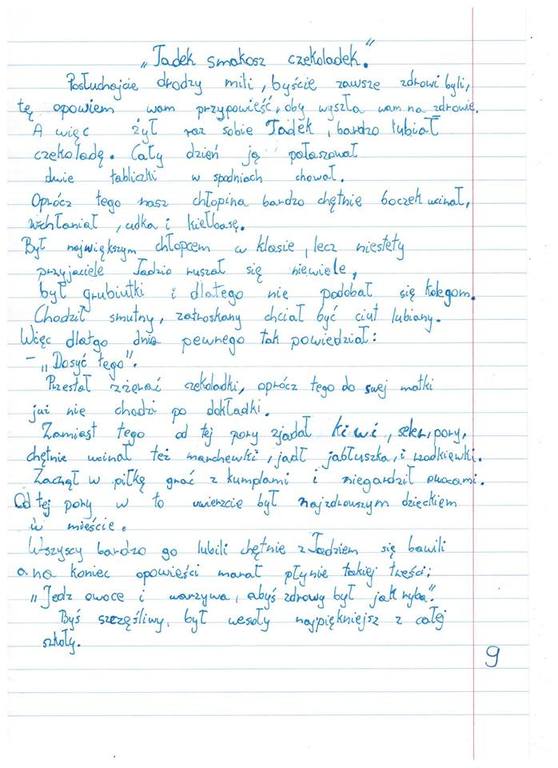 „Tadek smakosz czekoladek."
Posłuchajcie drodzy mili, byście zawsze zdrowi byli,
tę opowiem wam przypowieść, aby wyszła wam na zdrowie.
A więc żył raz sobie Tadek, bardzo lubiał
czekoladę. Cały dzień ją pałaszował
dwie tabliczki w spodniach chował.
Oprócz tego nasz chłopina bardzo chętnie boczek wcinał,
wchłaniał, udka i kiełbasę.
Był największym chłopcem w klasie, lecz niestety
przyjaciele Tadzio ruszał się niewiele,
był grubiutki i dlatego nie podobał się kolegom.
Chodził smutny, zatroskany chciał być ciut lubiany.
Więc dlatgo dnia pewnego tak powiedział:
– „Dosyć tego".
Przestał zżerać czekoladki, oprócz tego do swej matki
już nie chodzi po dokładki.
Zamiast tego od tej pory zjadał kiwi, seler, pory,
chętnie wcinał też marchewki, jadł jabłuszka, i rzodkiewki.
Zaczął w piłkę grać z kumplami i niegardził owocami.
Od tej pory w to uwierzcie był najzdrowszym dzieckiem
w mieście.
Wszyscy bardzo go lubili chętnie z Tadziem się bawili
a na koniec opowieści morał płynie takiej treści:
„Jedz owoce i warzywa, abyś zdrowy był jak ryba".
Byś szczęśliwy, był wesoły najpiękniejsz z całej
szkoły.
9